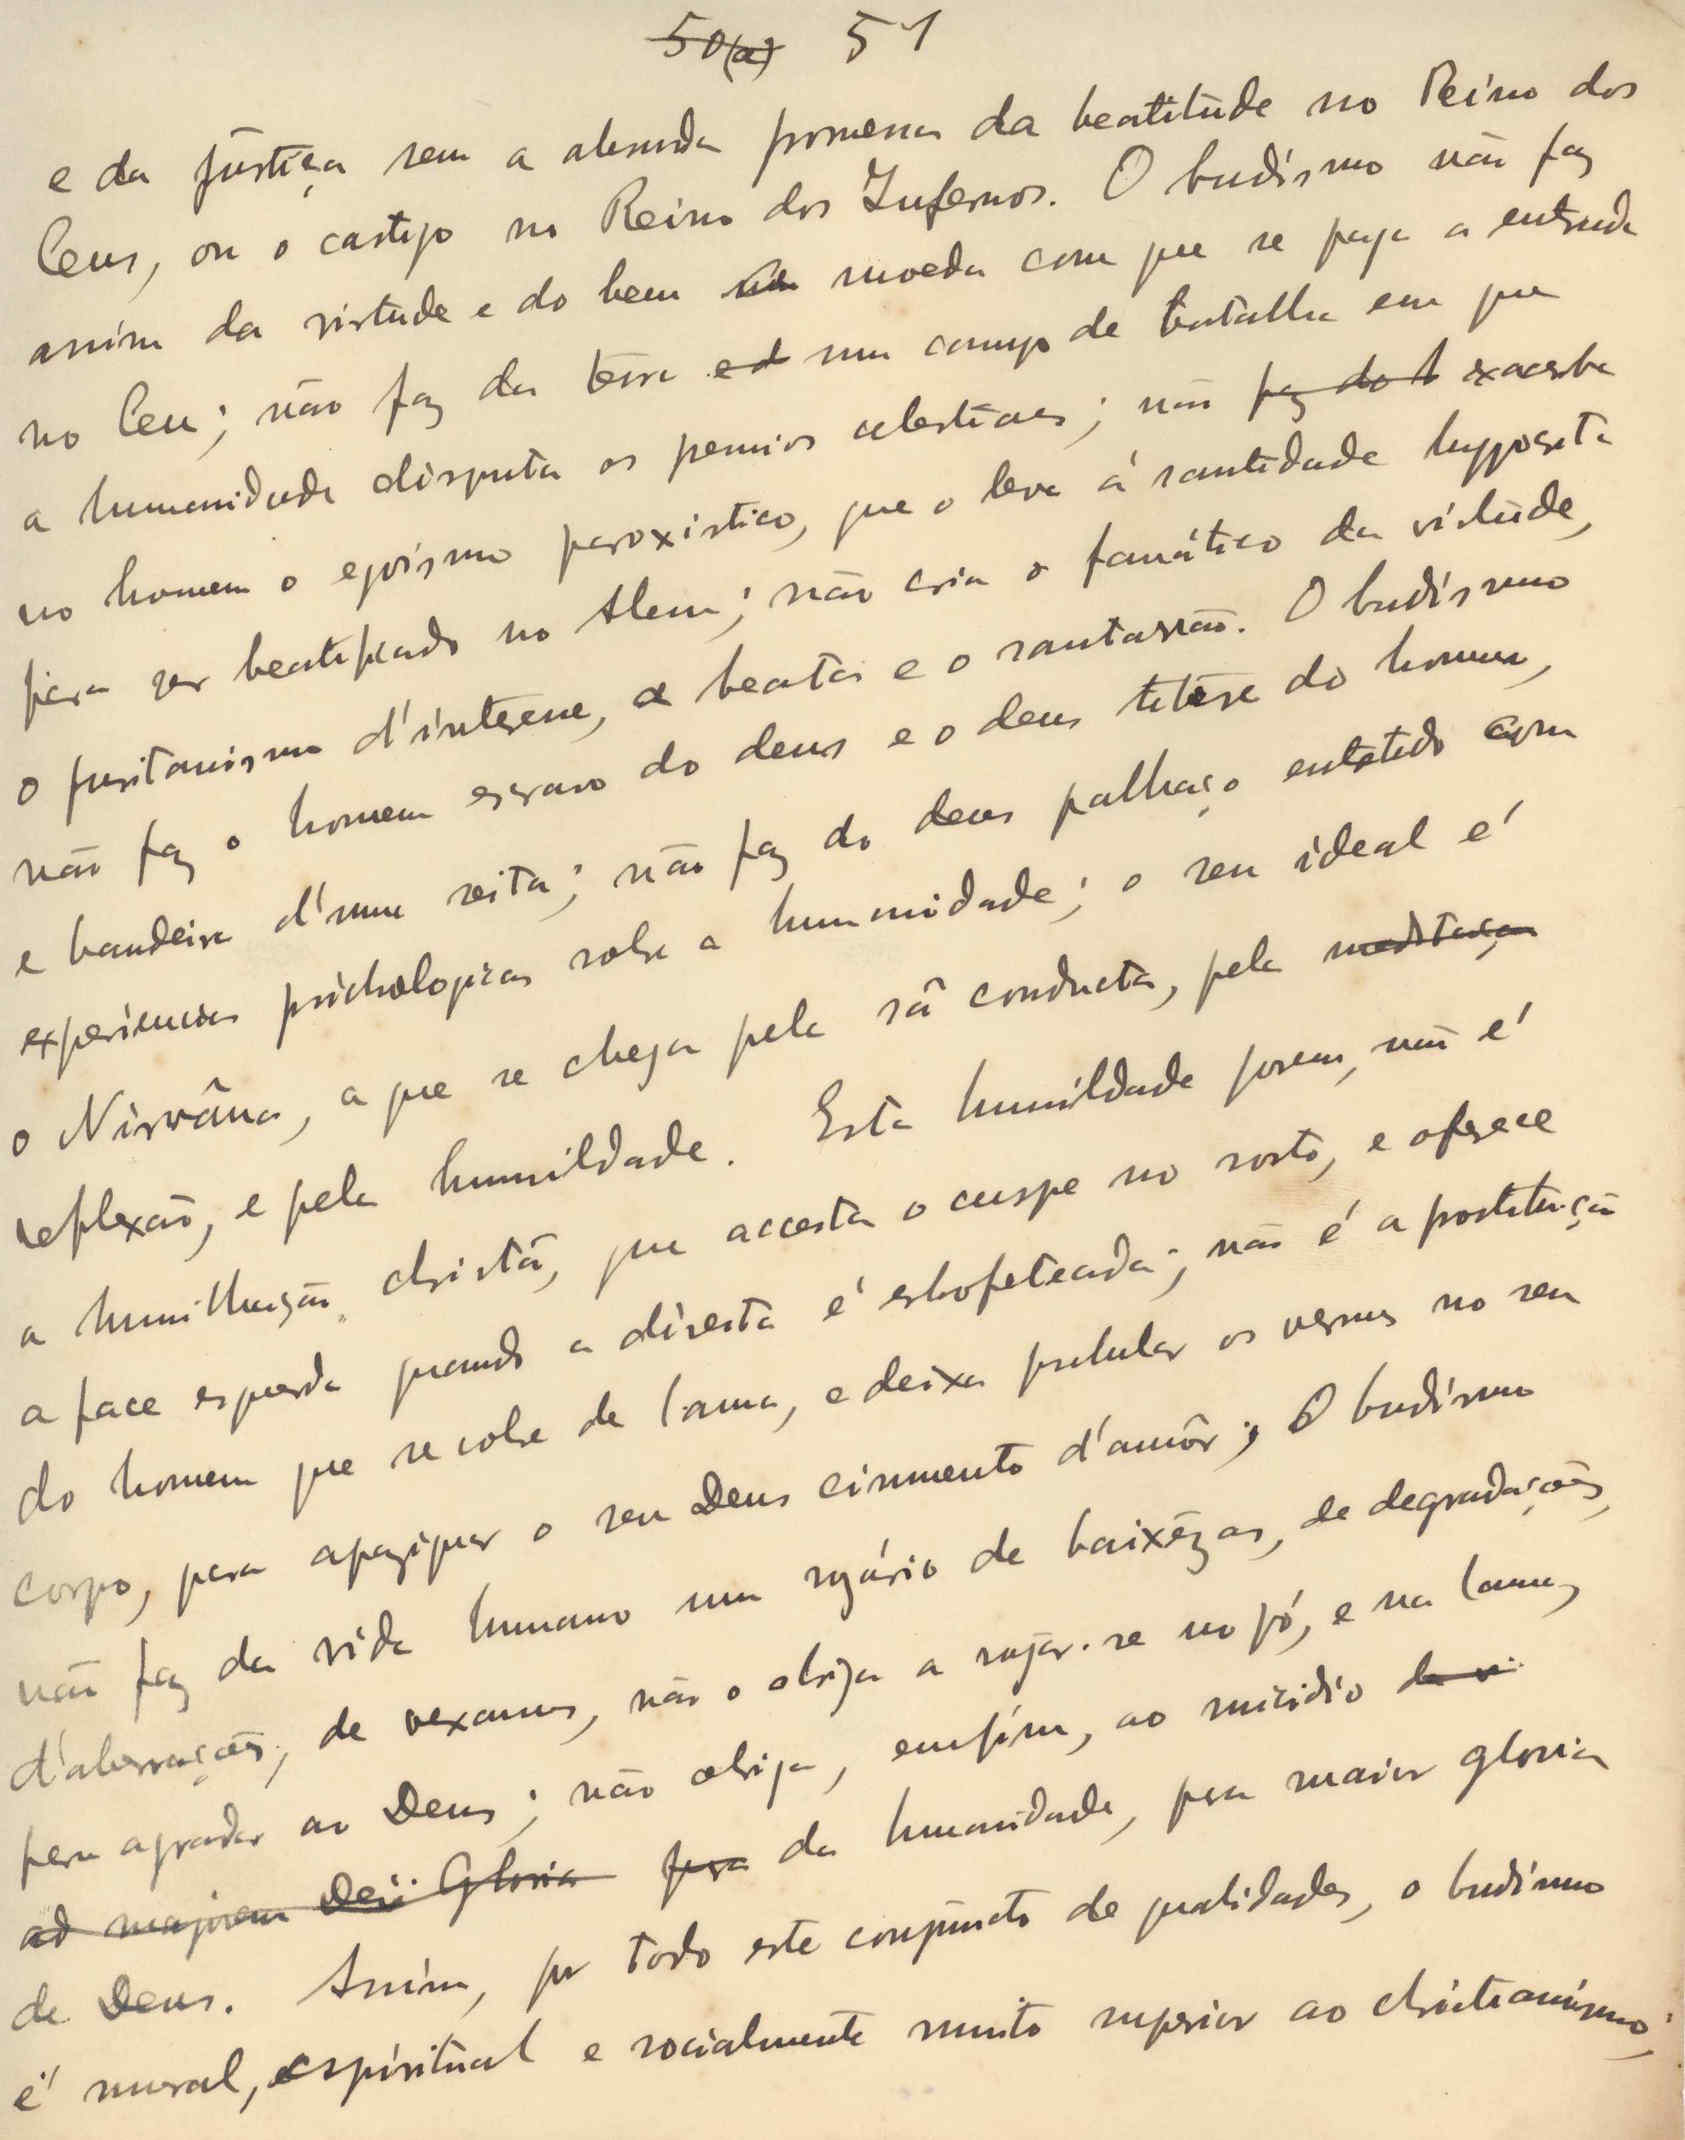 50(a) 51
e da justiça sem a absurda promessa da beatitude no Reino dos
Ceus, ou o castigo no Reino dos Infernos. O budismo não faz
assim da virtude e do bem moeda com que se paga a entrada
no Ceu; não faz da terra ed um campo de batalha em que
a humanidade disputa os premios celestiaes; não faz do h exacerba
no homem o egoismo paroxistico, que o leva á santidade hyppocrita
para ser beatificado no Alem; não cria o fanático da virtude,
o puritanismo d'interesse, a beata e o santarrão. O budismo
não faz o homem escravo do deus e o deus titere do homem,
e bandeira d'uma seita; não faz do deus palhaço entretido com
experiencias psichologicas sobre a humanidade; o seu ideal é
o Nirvâna, a que se chega pela sã conducta, pela meditação
reflexão, e pela humildade. Esta humildade porem, não é
a humilhação christã, que acceita o cuspe no rosto, e oferece
a face esquerda quando a direita é esbofeteada; não é a prostituição
do homem que se cobre de lama, e deixa pulular os vermes no seu
corpo, para apaziguar o seu Deus ciumento d'amôr; O budismo
não faz da vida humana um rosário de baixêzas, de degradações,
d'aberrações, de vexames, não o obriga a rojar-se no pó, e na lama,
para agradar ao Deus; não obriga, emfim, ao suicidio da v
ad majorem Dei Gloria para da humanidade, para maior gloria
de Deus. Assim, por todo este conjuncto de qualidades, o budismo
é moral, espiritual e socialmente muito superior ao christianismo;